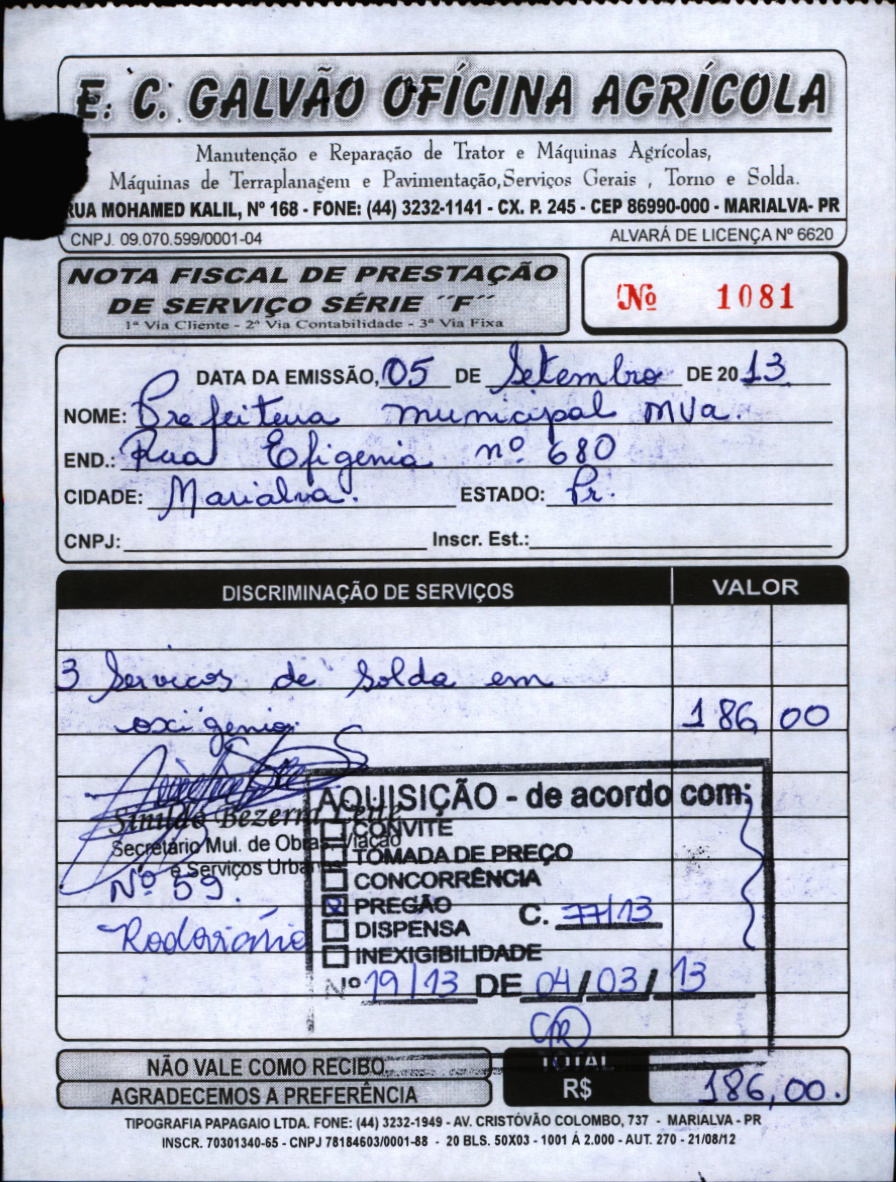 E. C. GALVÃO OFÍCINA AGRÍCOLA
Manutenção e Reparação de Trator e Máquinas Agrícolas,
Máquinas de Terraplanagem e Pavimentação,Serviços Gerais , Torno e Solda.
RUA MOHAMED KALIL, Nº 168 - FONE: (44) 3232-1141 - CX. P. 245 - CEP 86990-000 - MARIALVA- PR
CNPJ. 09.070.599/0001-04 ALVARÁ DE LICENÇA Nº 6620
NOTA FISCAL DE PRESTAÇÃO
DE SERVIÇO SÉRIE "F"
1ª Via Cliente - 2ª Via Contabilidade - 3ª Via Fixa
Nº 1081
DATA DA EMISSÃO, 05 DE Setembro DE 2013
NOME: Prefeitura municipal mva.
END.: Rua Efigenia nº 680
CIDADE: Marialva. ESTADO: Pr.
CNPJ: Inscr. Est.:
DISCRIMINAÇÃO DE SERVIÇOS VALOR
3 Servicos de solda em
oxigenio. 186,00
AQUISIÇÃO - de acordo com:
CONVITE
TOMADA DE PREÇO
CONCORRÊNCIA
PREGÃO C. 77/13
DISPENSA
INEXIGIBILIDADE
Nº 19/13 DE 04/03/13
Bezerra
Secretário Mul. de Obras, Viação
e Serviços Urbanos
Nº 59.
Rodoviário
NÃO VALE COMO RECIBO
AGRADECEMOS A PREFERÊNCIA
TOTAL
R$ 186,00.
TIPOGRAFIA PAPAGAIO LTDA. FONE: (44) 3232-1949 - AV. CRISTÓVÃO COLOMBO, 737 - MARIALVA - PR
INSCR. 70301340-65 - CNPJ 78184603/0001-88 - 20 BLS. 50X03 - 1001 Á 2.000 - AUT. 270 - 21/08/12